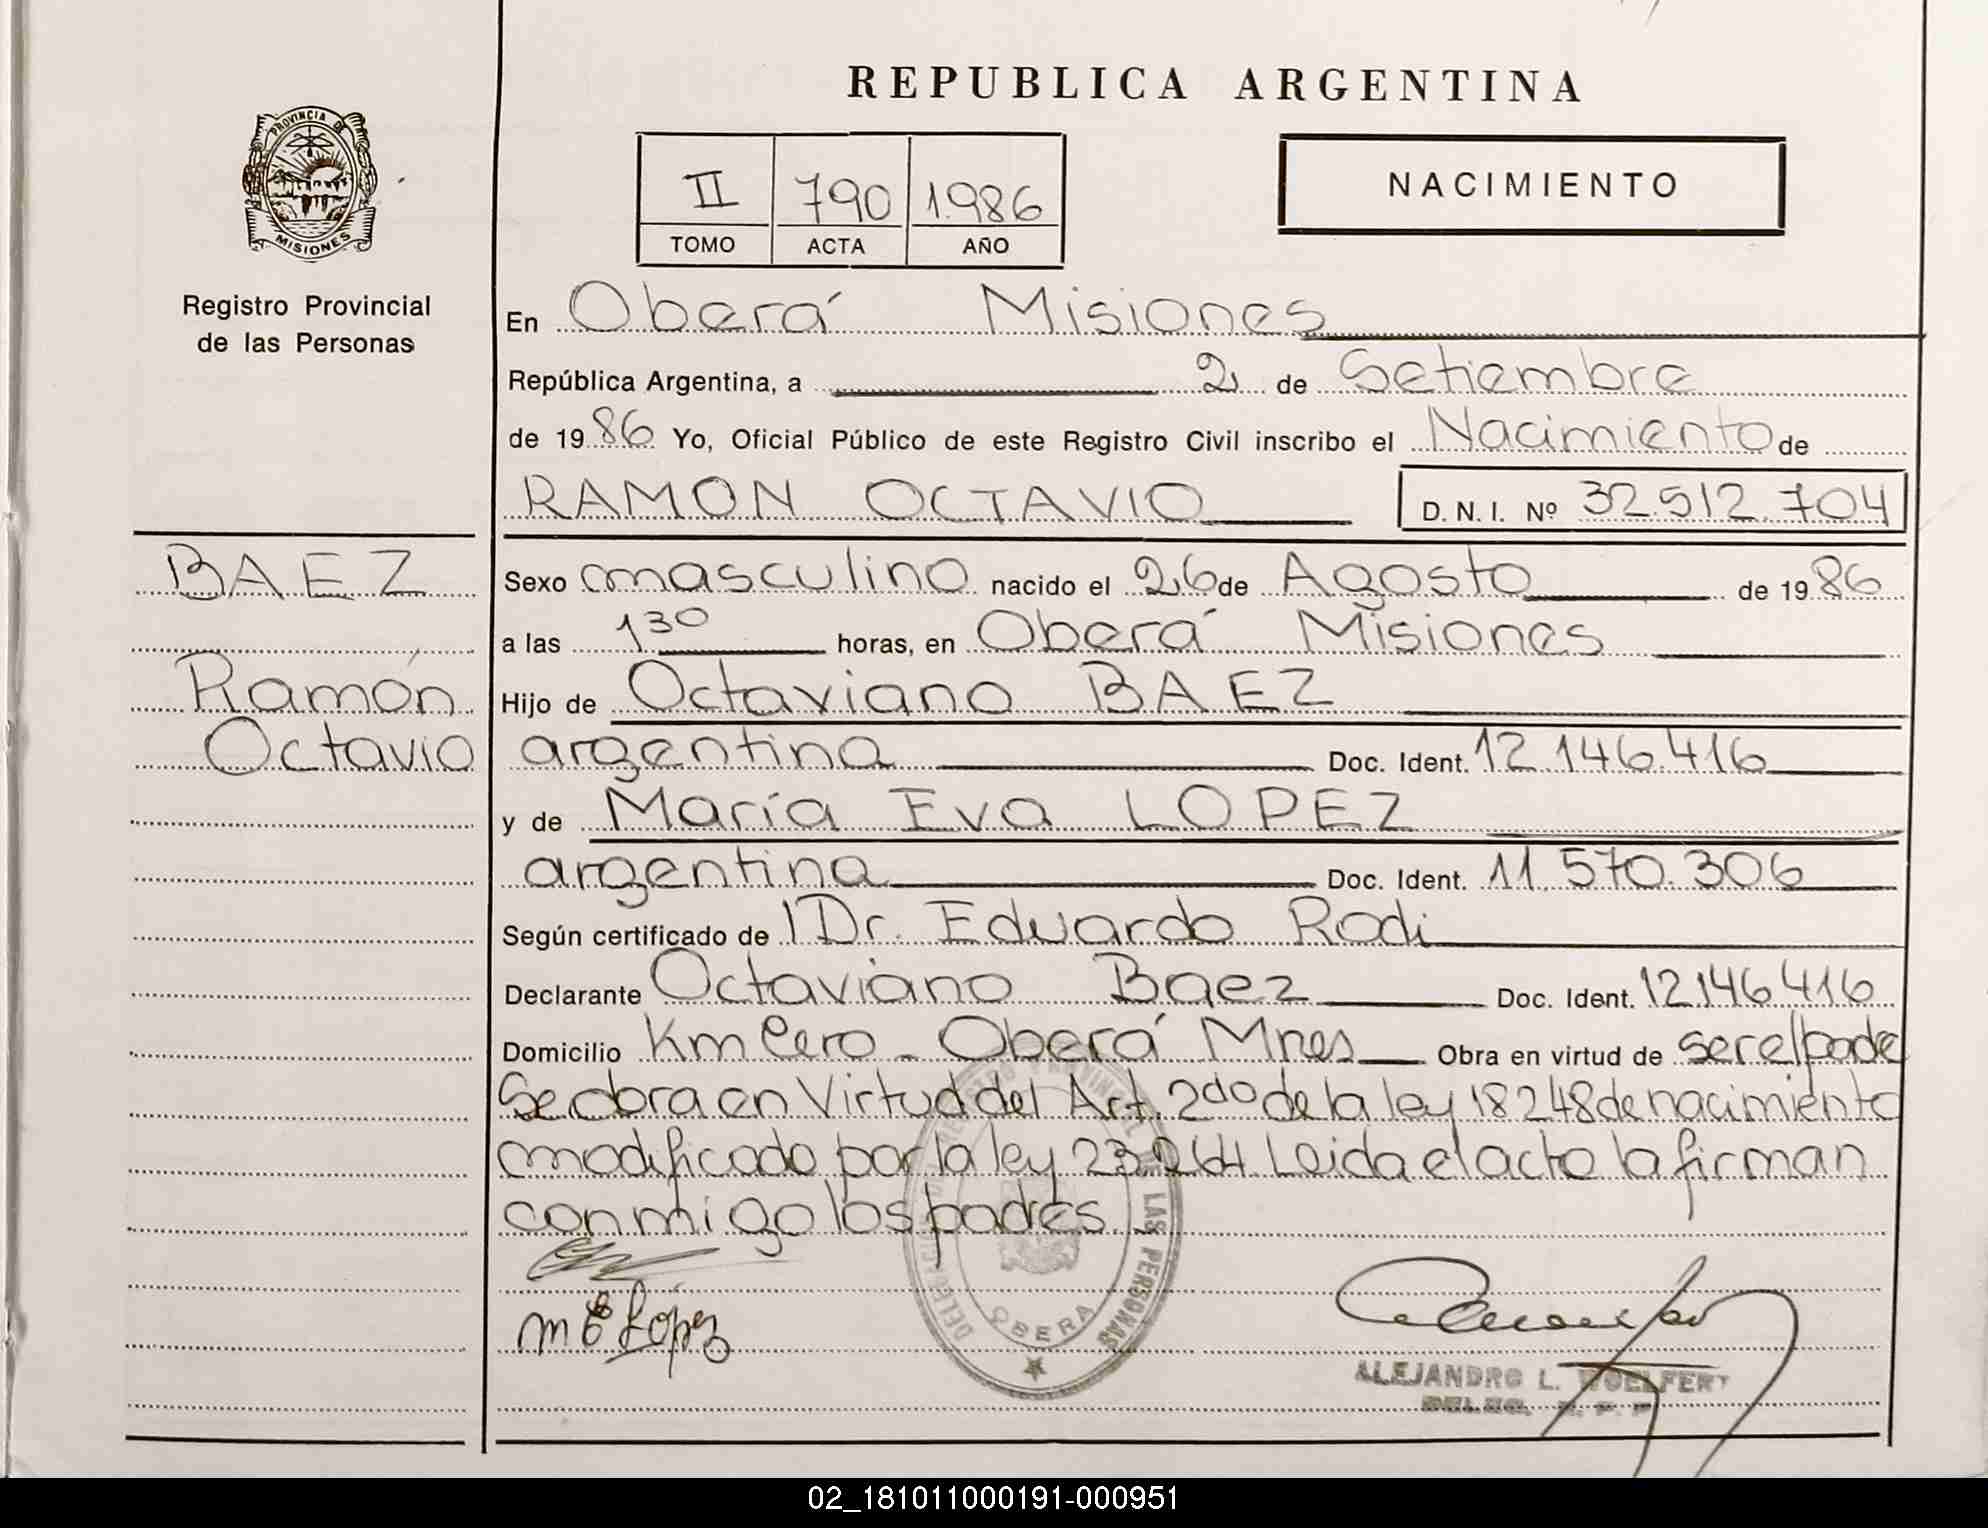 REPUBLICA ARGENTINA
PROVINCIA DE
MISIONES
Registro Provincial
de las Personas
II 790 1986
TOMO ACTA AÑO
NACIMIENTO
En Oberá Misiones
República Argentina, a 2 de Setiembre
de 1986 Yo, Oficial Público de este Registro Civil inscribo el Nacimiento de
RAMON OCTAVIO D. N. I. Nº 32.512.704
BAEZ
Ramón
Octavio
Sexo masculino nacido el 26 de Agosto de 1986
a las 1 30 horas, en Oberá Misiones
Hijo de Octaviano BAEZ
argentina Doc. Ident. 12.146.416
y de María Eva LOPEZ
argentina Doc. Ident. 11.570.306
Según certificado de Dr. Eduardo Rodi
Declarante Octaviano Baez Doc. Ident. 12.146.416
Domicilio Km Cero - Oberá Mnes Obra en virtud de ser el padre
Se obra en Virtud del Art. 2do de la ley 18248 de nacimiento
modificado por la ley 23.264. Leida el acta la firman
conmigo los padres.
M E López
LAS PERSONAS
OBERA
ALEJANDRO L. WOELFERT
DELEG. R. P. P.
02_181011000191-000951